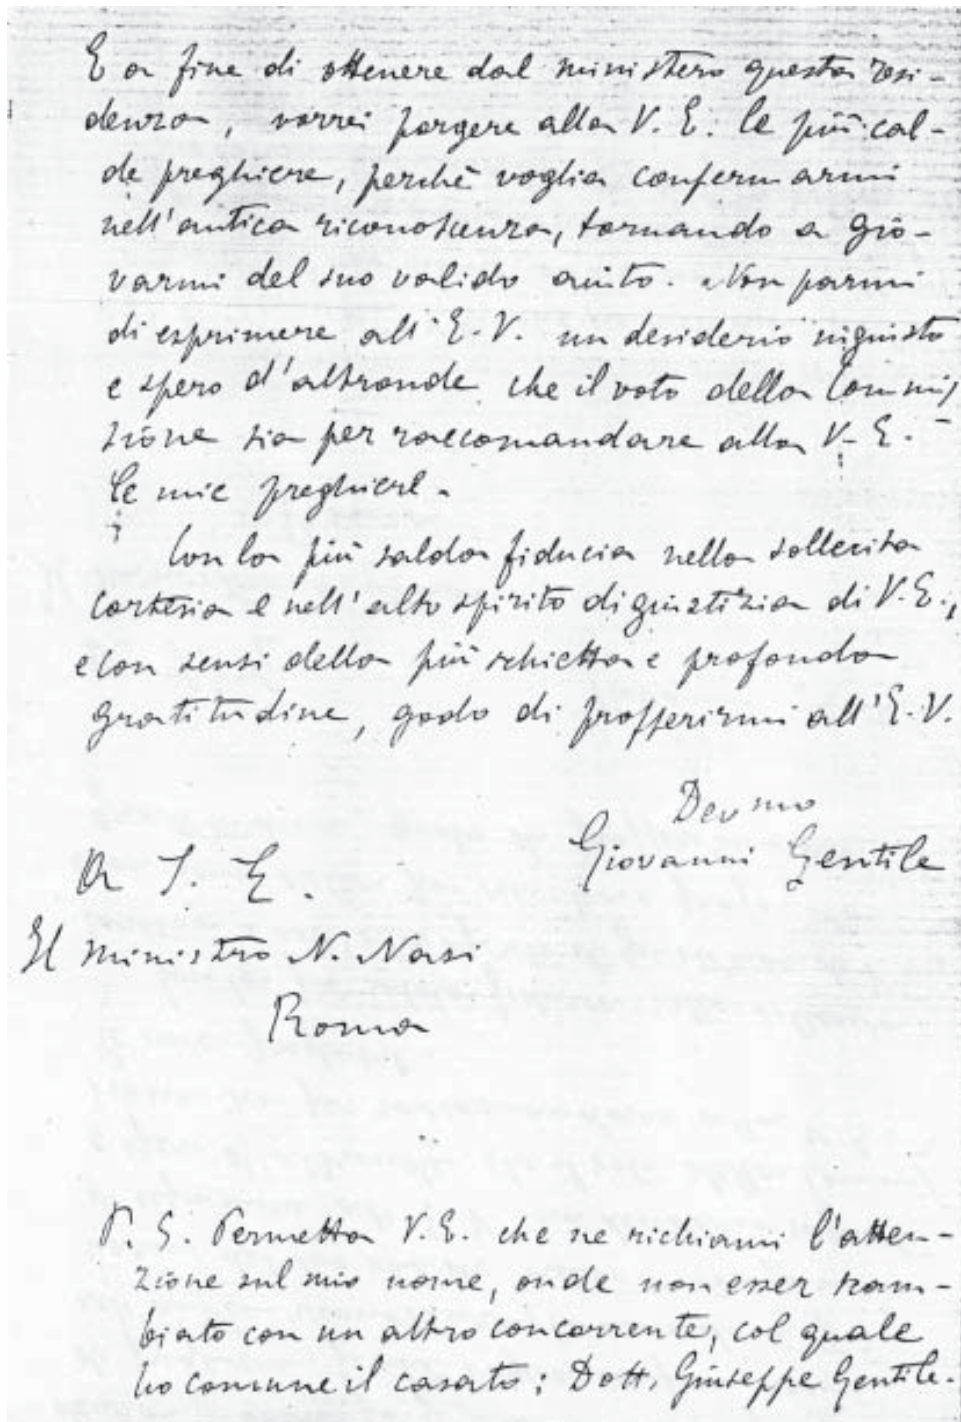 E a fine di ottenere dal ministero questa resi-
denza, vorrei porgere alla V. E. le più cal-
de preghiere, perchè voglia confermarmi
nell'antica riconoscenza, tornando a gio-
varmi del suo valido aiuto. Non parmi
di esprimere all'E. V. un desiderio ingiusto
e spero d'altronde che il voto della Commis
sione sia per raccomandare alla V. E. -
le mie preghiere.
Con la più salda fiducia nella sollecita
cortesia e nell'alto spirito di giustizia di V. E.,
e con sensi della più schietta e profonda
gratitudine, godo di profferirmi all'E. V.
Devmo
Giovanni Gentile
A S. E.
Il ministro N. Nasi
Roma
P. S. Permetta V. E. che ne richiami l'atten-
zione sul mio nome, onde non esser scam-
biato con un altro concorrente, col quale
ho comune il casato: Dott. Giuseppe Gentile.